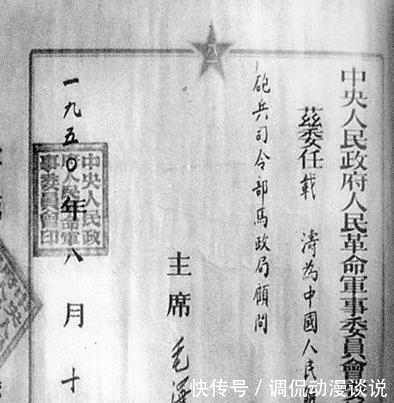 中央人民政府人民革命軍事委員會
茲委任 載 濤為中國人民
砲兵司令部馬政局顧問
主席 毛澤
一九五〇年八月十
中央人民政
府人民革命軍
事委員會印
快传号／调侃动漫谈说